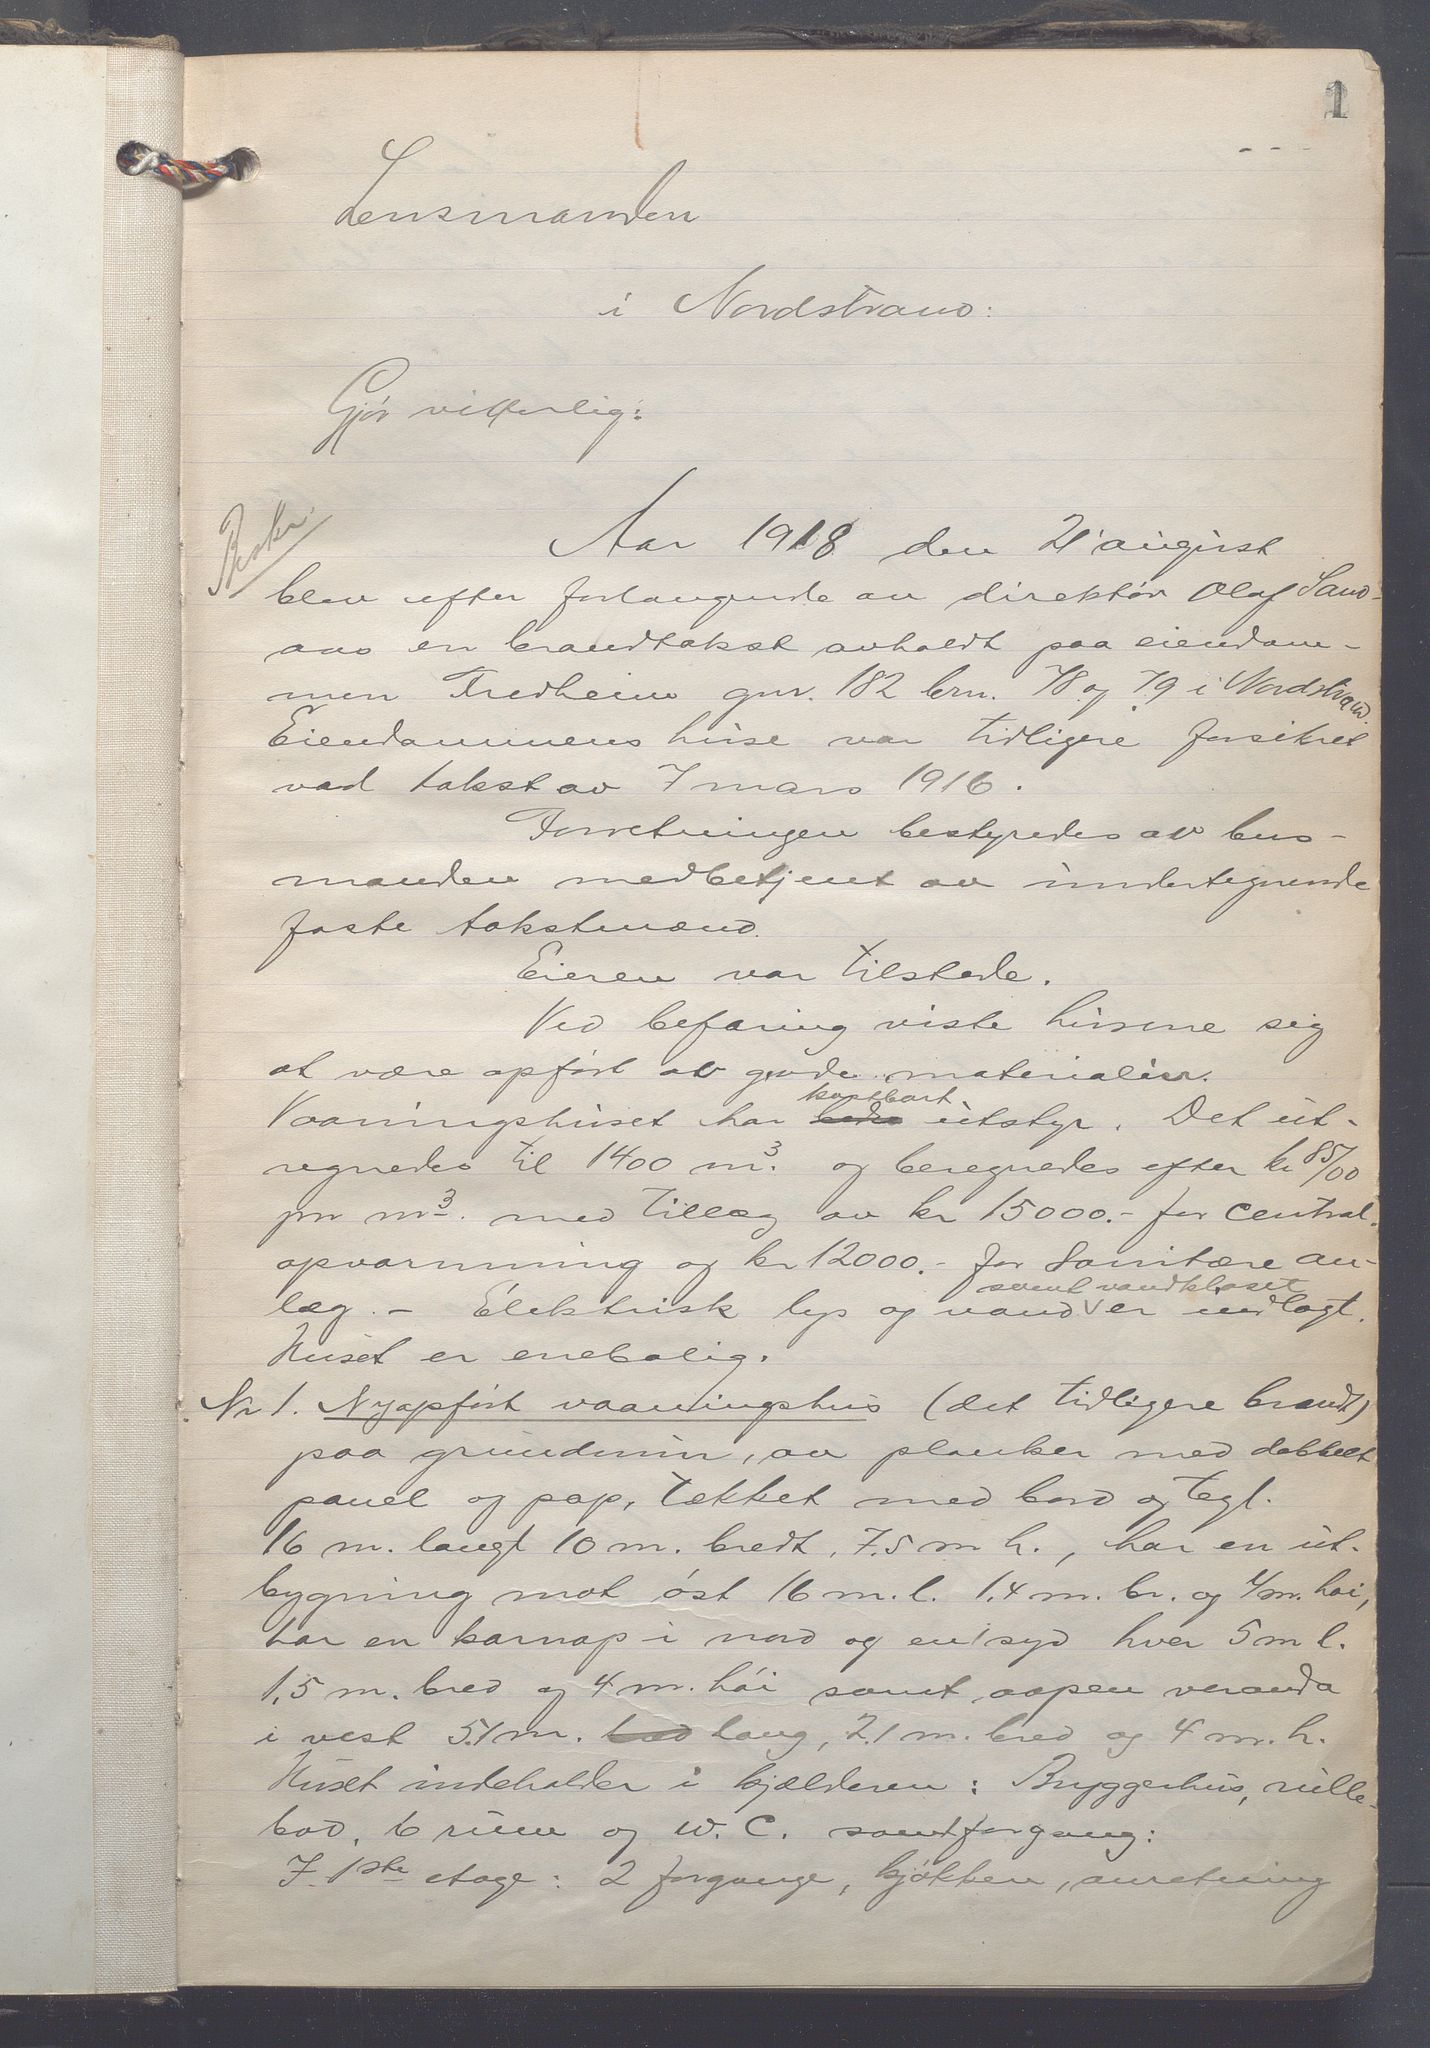 1
Lensmanden
i Nordstrand:
Gjør vitterlig:
Beskr.
Aar 1918 den 21 august
blev efter forlangende av direktør Olaf Sand-
aas en brandtakst avholdt paa eiendom-
men Fredheim gnr. 182 brn. 78 og 79 i Nordstrand.
Eiendommens huse var tidligere forsikret
ved takst av 7 mars 1916.
Forretningen bestyredes av lens-
manden medbetjent av undertegnende
faste takstmænd.
Eieren var tilstede.
Ved befaring viste husene sig
at være opført av gode materialier.
kostbart
Vaaningshuset har bedre utstyr. Det ut-
regnedes til 1400 m³. og beregnedes efter kr 85/00
pr m³. med tillæg av kr 15000.- for central-
opvarmning og kr 12000.- for Sanitære an-
samt vandkloset
læg. - Elektrisk lys og vand er indlagt.
Huset er enebolig.
Nr 1. Nyopført vaaningshus (det tidligere brændt)
paa grundmur, av planker med dobbelt
panel og pap, tækket med bord og tegl.
16 m. langt 10 m. bredt, 7.5 m h., har en ut-
bygning mot øst 16 m. l. 1.4 m. br. og 4 m. høi,
har en karnap i nord og en i syd hver 5 m l.
1,5 m. bred og 4 m. høi samt aapen veranda
i vest 5.1 m. bred lang, 2.1 m. bred og 4 m. h.
Huset indeholder i kjælderen: Bryggerhus, rulle-
bod, 6 rum og W. C. samt forgang:
I 1ste etage: 2 forgange, kjøkken, anretning